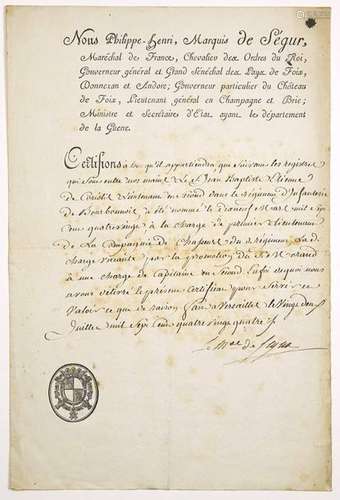 Nous Philippe-Henri, Marquis de Ségur,
Maréchal de France, Chevalier des Ordres du Roi,
Gouverneur général et Grand Sénéchal des Pays de Foix,
Donnezan et Andore; Gouverneur particulier du Château
de Foix, Lieutenant général en Champagne et Brie;
Ministre et Secrétaire d'Etat, ayant le département
de la Guerre.
Certifions à tous qu'il appartiendra que suivant les registres
qui sont entre nos mains Le S. Jean Baptiste Etienne
Lieutenant en second dans le régiment d'infanterie
de Bourbonnois a été nommé le dixneuf Mars mil sept
cens quatrevingt à la charge de premier Lieutenant
de La Compagnie de Chapuset du d. régiment La d.
charge vacante par la promotion du S. Morand
à une charge de Capitaine en second En foi de quoi nous
avons délivré le présent Certificat pour servir et
valoir ce que de raison fait à Versailles le Vingt deux
Juillet mil sept cent quatre vingt quatre
le M.al de Ségur